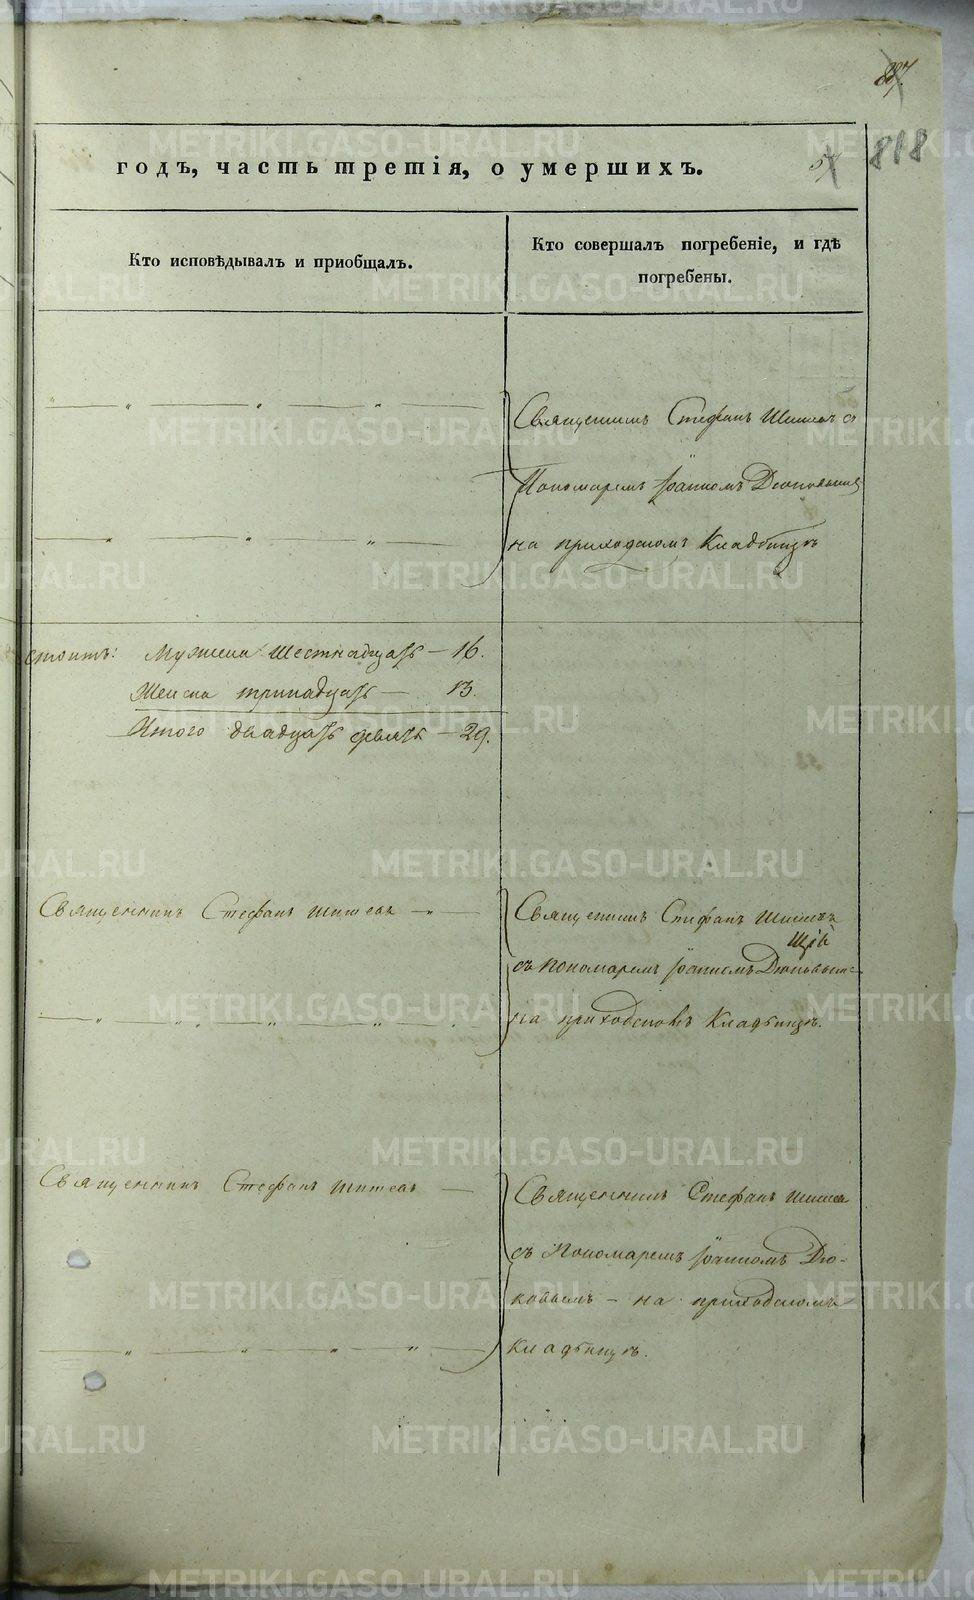 887.
годъ, часть третія, о умершихъ.
818
Кто исповѣдывалъ и приобщалъ.
Кто совершалъ погребеніе, и гдѣ
погребены.
Священникъ Стефанъ съ
Пономаремъ Іоанномъ
на приходскомъ Кладбищѣ
стоитъ: Мужеска Шестнадцать — 16.
Женска тринадцать — 13.
Итого двадцать девять — 29.
Священникъ Стефанъ Шитевъ
Священникъ Стефанъ
съ Пономаремъ Іоанномъ
на приходскомъ Кладбищѣ.
Священникъ Стефанъ Шитевъ —
Священникъ Стефанъ
съ Пономаремъ Іоанномъ Дю-
ковымъ — на приходскомъ
кладбищѣ.
METRIKI.GASO-URAL.RU